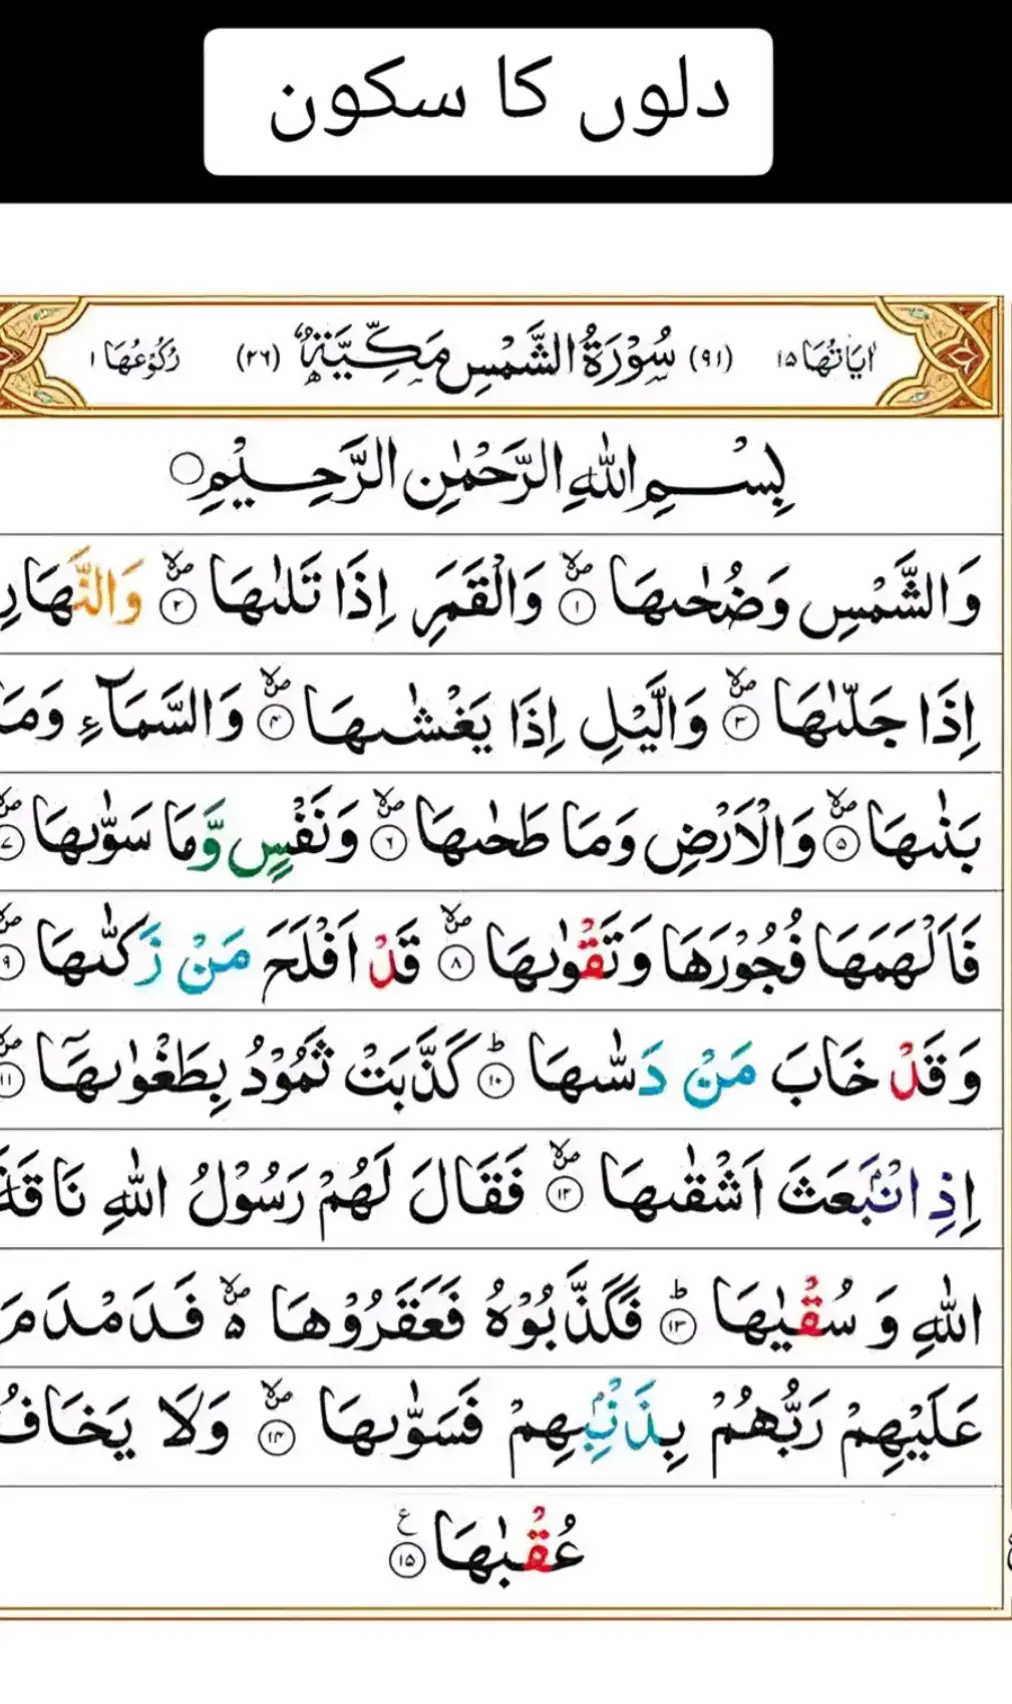 دلوں کا سکون
اٰيَاتُهَا ١٥ (٩١) سُوْرَةُ الشَّمْسِ مَكِّيَّةٌ (٢٦) رُكُوْعُهَا ١
بِسْمِ اللّٰهِ الرَّحْمٰنِ الرَّحِيْمِ
وَالشَّمْسِ وَضُحٰىهَا ۪ۙ ١ وَالْقَمَرِ اِذَا تَلٰىهَا ۪ۙ ٢ وَالنَّهَارِ
اِذَا جَلّٰىهَا ۪ۙ ٣ وَالَّيْلِ اِذَا يَغْشٰىهَا ۪ۙ ٤ وَالسَّمَآءِ وَمَا
بَنٰىهَا ۪ۙ ٥ وَالْاَرْضِ وَمَا طَحٰىهَا ۪ۙ ٦ وَنَفْسٍ وَّمَا سَوّٰىهَا ۪ۙ ٧
فَاَلْهَمَهَا فُجُوْرَهَا وَتَقْوٰىهَا ۪ۙ ٨ قَدْ اَفْلَحَ مَنْ زَكّٰىهَا ۪ۙ ٩
وَقَدْ خَابَ مَنْ دَسّٰىهَا ؕ ١٠ كَذَّبَتْ ثَمُوْدُ بِطَغْوٰىهَاۤ ۪ۙ ١١
اِذِ انْۢبَعَثَ اَشْقٰىهَا ۪ۙ ١٢ فَقَالَ لَهُمْ رَسُوْلُ اللّٰهِ نَاقَةَ
اللّٰهِ وَ سُقْيٰهَا ؕ ١٣ فَكَذَّبُوْهُ فَعَقَرُوْهَا ۪ۙ۵ فَدَمْدَمَ
عَلَيْهِمْ رَبُّهُمْ بِذَنْۢبِهِمْ فَسَوّٰىهَا ۪ۙ ١٤ وَلَا يَخَافُ
عُقْبٰهَا ١٥ ع